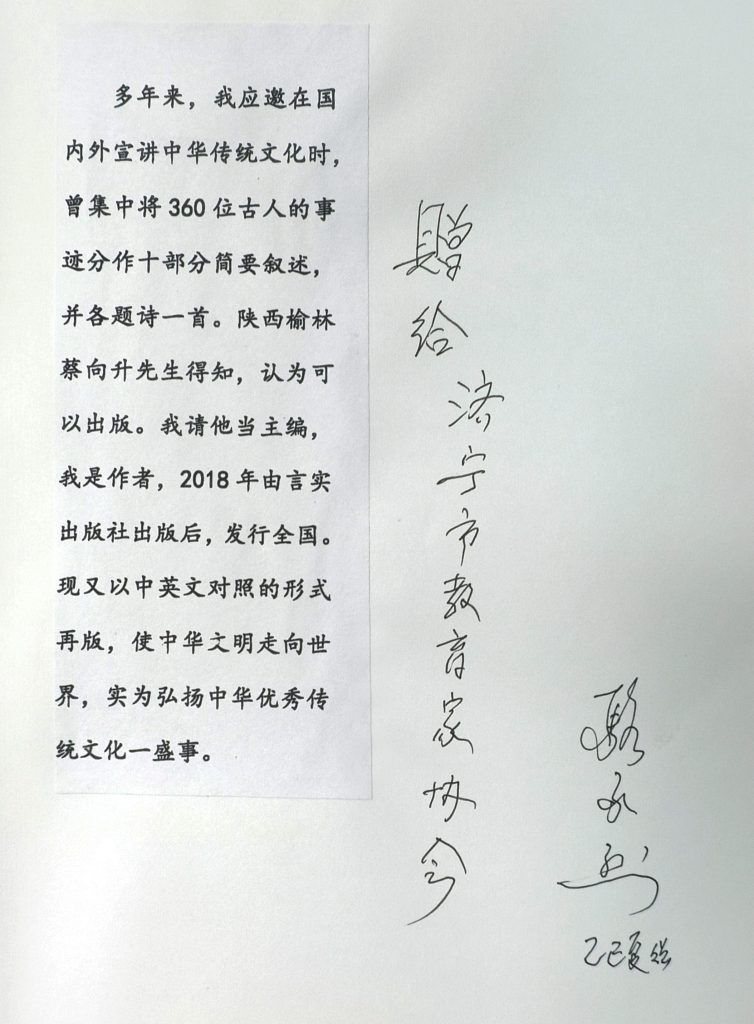 多年来，我应邀在国
内外宣讲中华传统文化时，
曾集中将 360 位古人的事
迹分作十部分简要叙述，
并各题诗一首。陕西榆林
蔡向升先生得知，认为可
以出版。我请他当主编，
我是作者，2018 年由言实
出版社出版后，发行全国。
现又以中英文对照的形式
再版，使中华文明走向世
界，实为弘扬中华优秀传
统文化一盛事。
贈给
济宁市教育家协会
駱承烈
乙巳夏